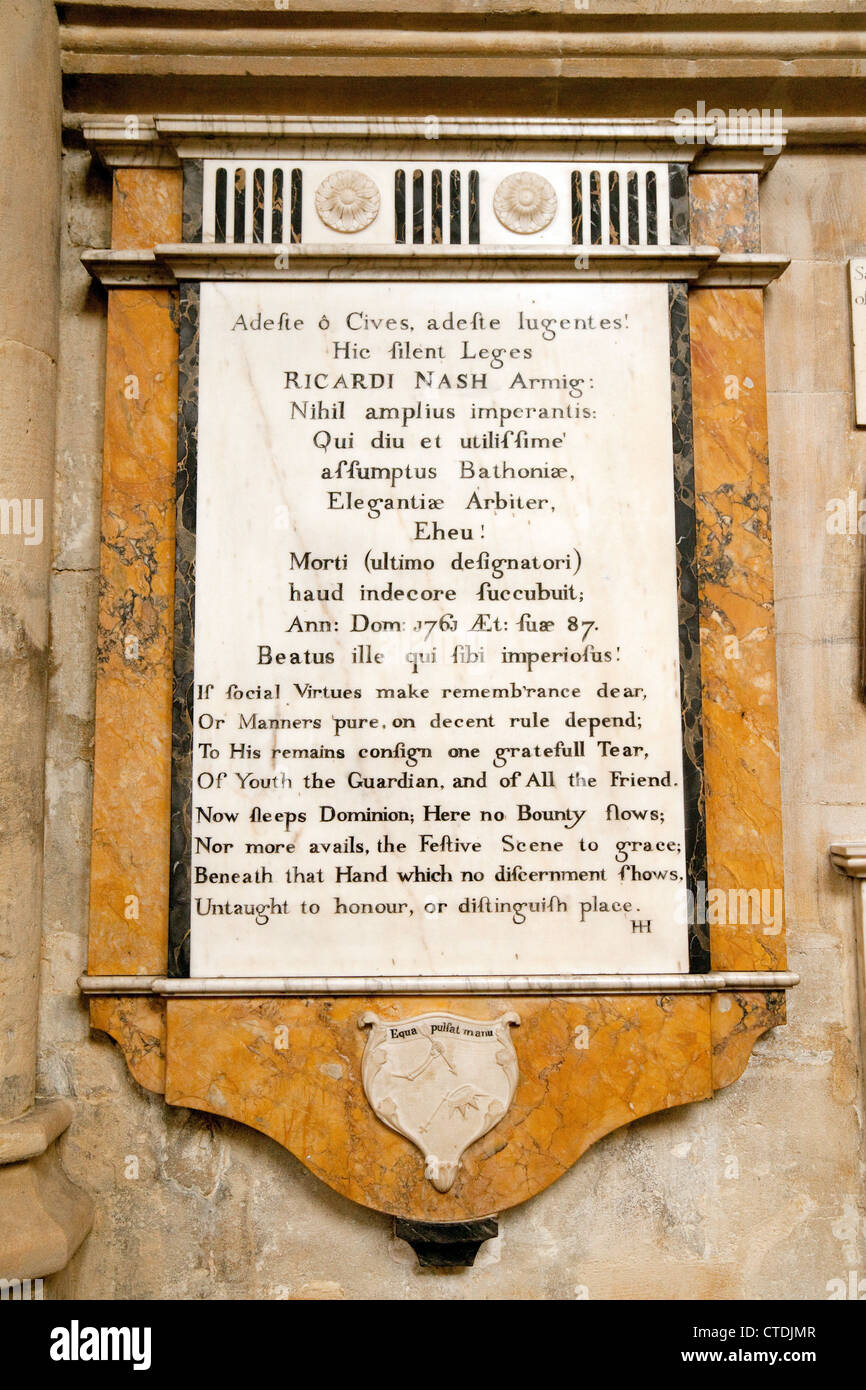 Adeſte ô Cives, adeſte lugentes!
Hic ſilent Leges
RICARDI NASH Armig:
Nihil amplius imperantis:
Qui diu et utiliſſime'
aſſumptus Bathoniæ,
Elegantiæ Arbiter,
Eheu!
Morti (ultimo deſignatori)
haud indecore ſuccubuit;
Ann: Dom: 1761 Æt: ſuæ 87.
Beatus ille qui ſibi imperioſus!
If ſocial Virtues make rememb'rance dear,
Or Manners pure, on decent rule depend;
To His remains conſign one gratefull Tear,
Of Youth the Guardian, and of All the Friend.
Now ſleeps Dominion; Here no Bounty flows;
Nor more avails, the Feſtive Scene to grace;
Beneath that Hand which no diſcernment ſhows,
Untaught to honour, or diſtinguiſh place.
HH
Equa pulſat manu
Sa
of
alamy
alamy stock photo
CTDJMR
www.alamy.com